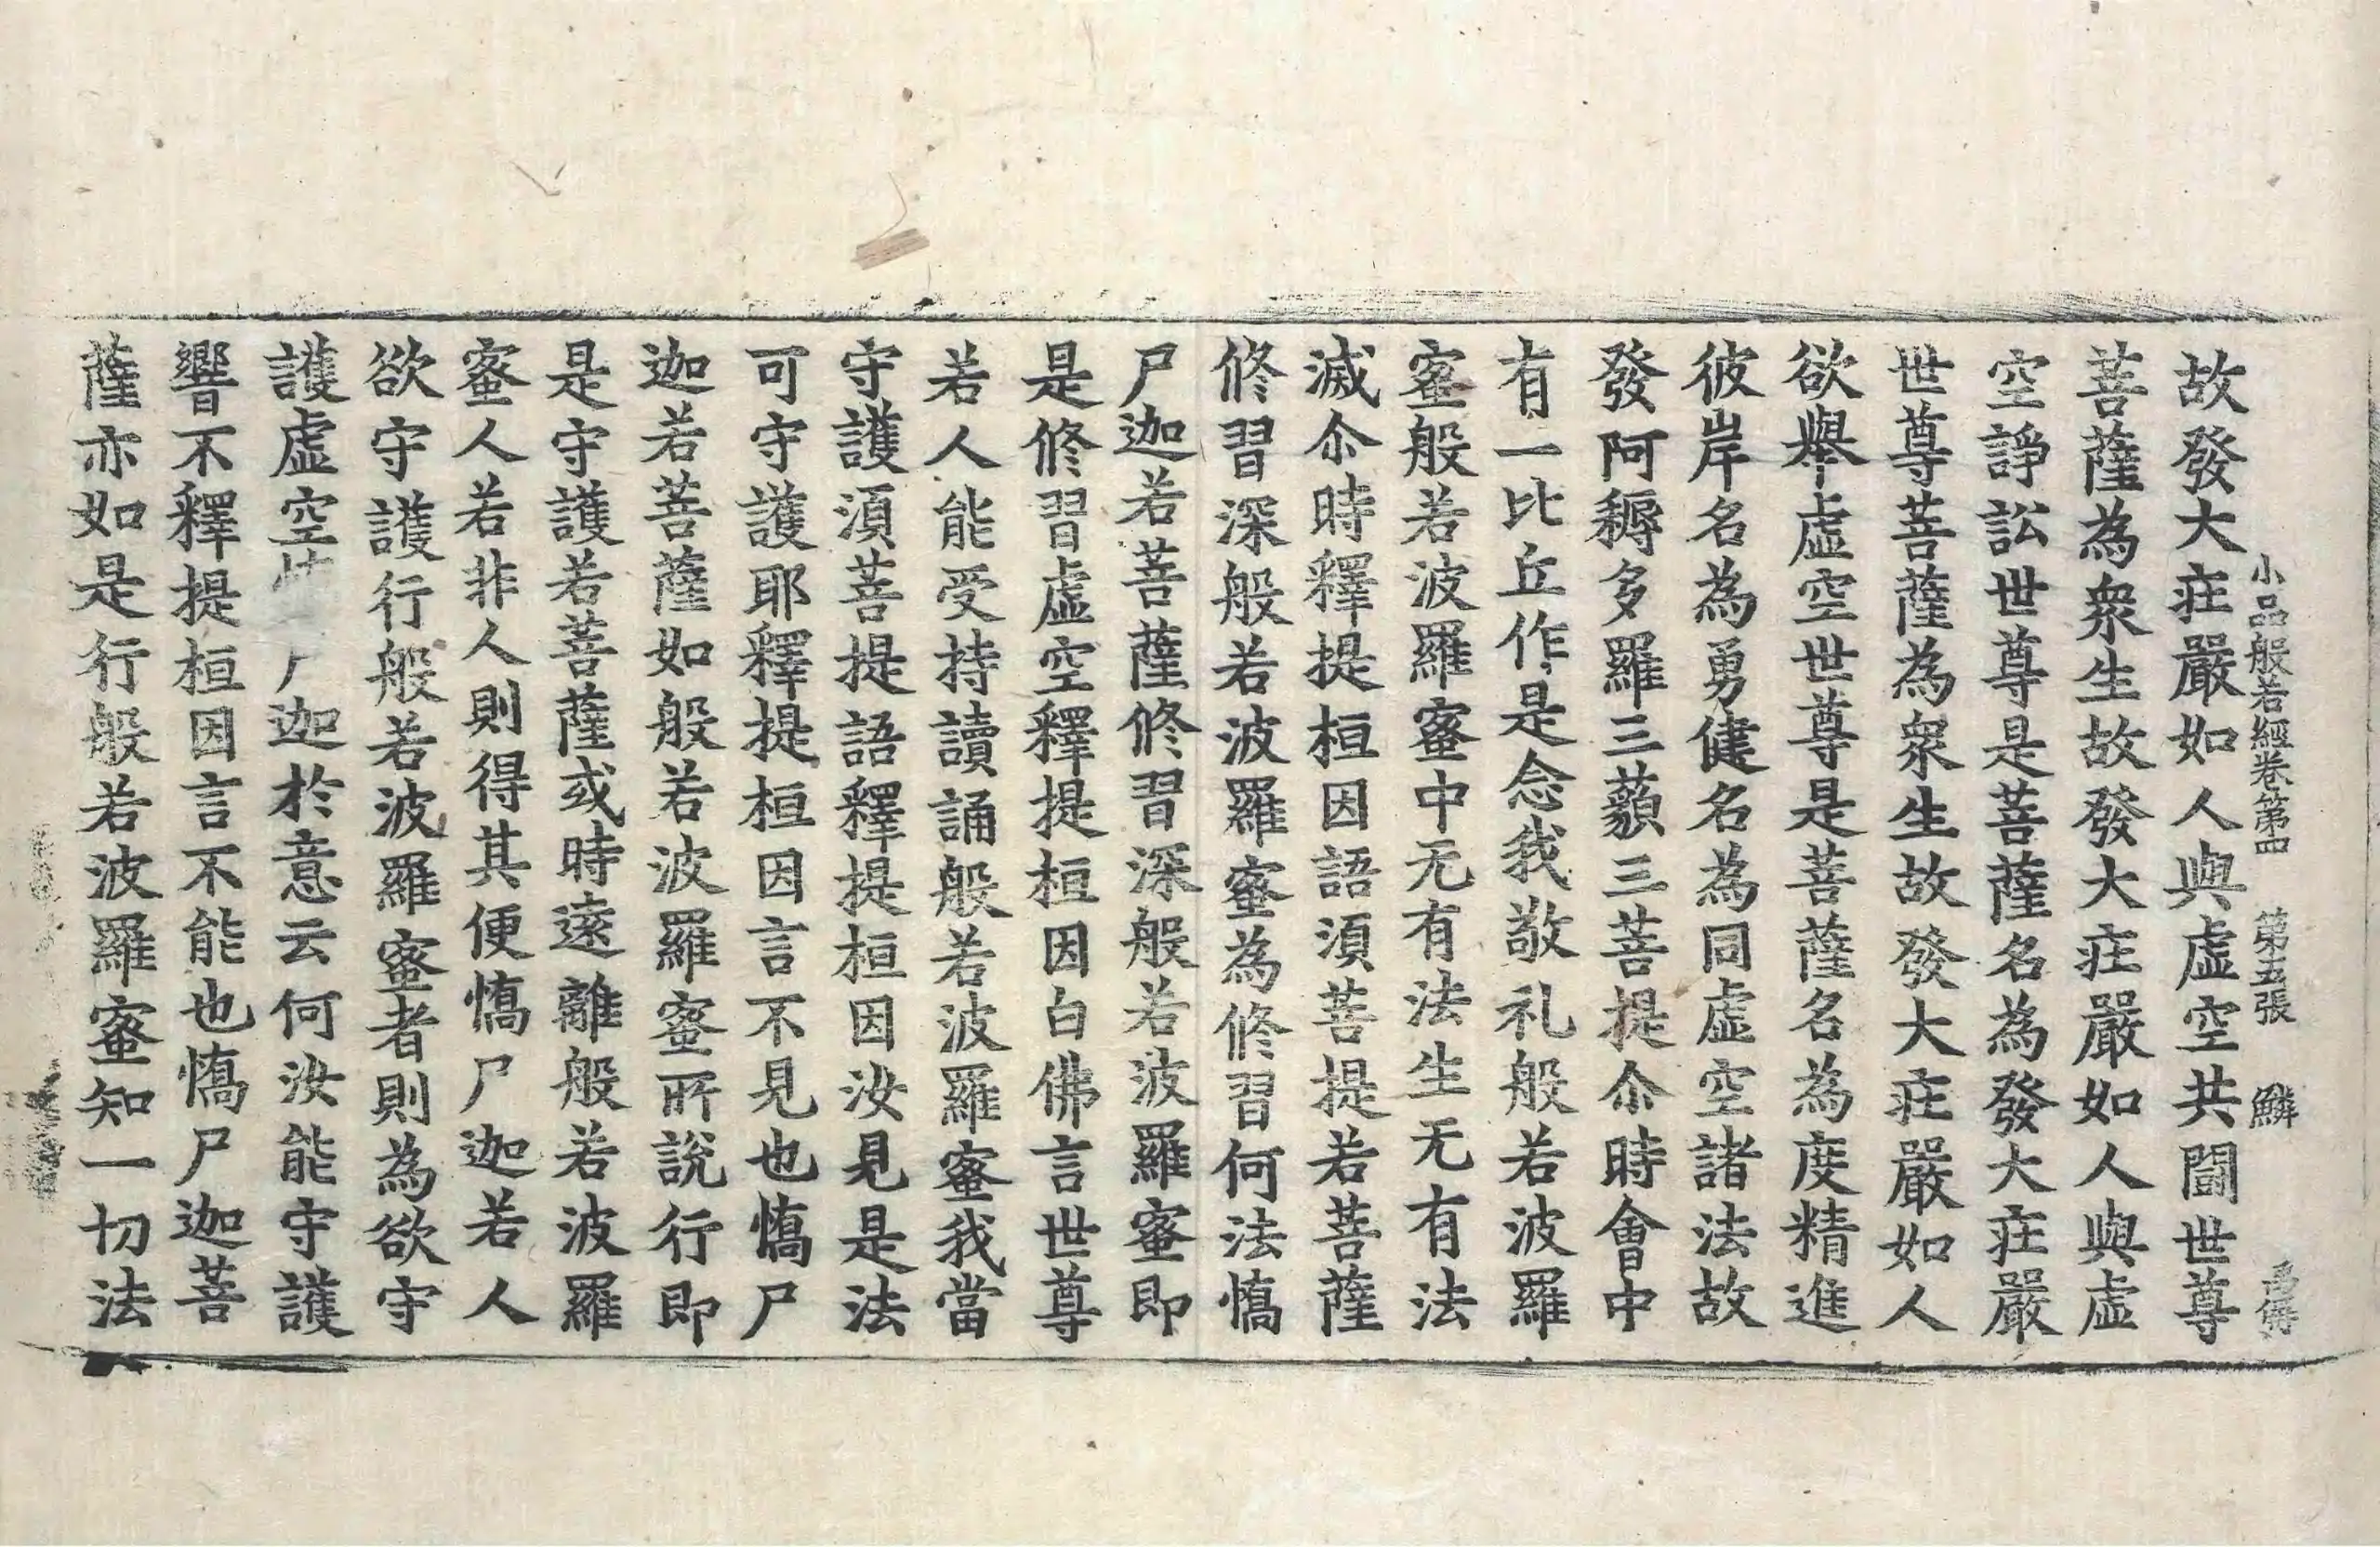 小品般若經卷第四 第五張 鱗
故發大莊嚴如人與虛空共鬪世尊
菩薩為衆生故發大莊嚴如人與虛
空諍訟世尊是菩薩名為發大莊嚴
世尊菩薩為衆生故發大莊嚴如人
欲舉虛空世尊是菩薩名為度精進
彼岸名為勇健名為同虛空諸法故
發阿耨多羅三藐三菩提尒時會中
有一比丘作是念我敬礼般若波羅
蜜般若波羅蜜中无有法生无有法
滅尒時釋提桓因語湏菩提若菩薩
修習深般若波羅蜜為修習何法憍
尸迦若菩薩修習深般若波羅蜜即
是修習虛空釋提桓因白佛言世尊
若人能受持讀誦般若波羅蜜我當
守護湏菩提語釋提桓因汝見是法
可守護耶釋提桓因言不見也憍尸
迦若菩薩如般若波羅蜜所說行即
是守護若菩薩或時遠離般若波羅
蜜人若非人則得其便憍尸迦若人
欲守護行般若波羅蜜者則為欲守
護虛空 迦於意云何汝能守護
響不釋提桓因言不能也憍尸迦菩
薩亦如是行般若波羅蜜知一切法